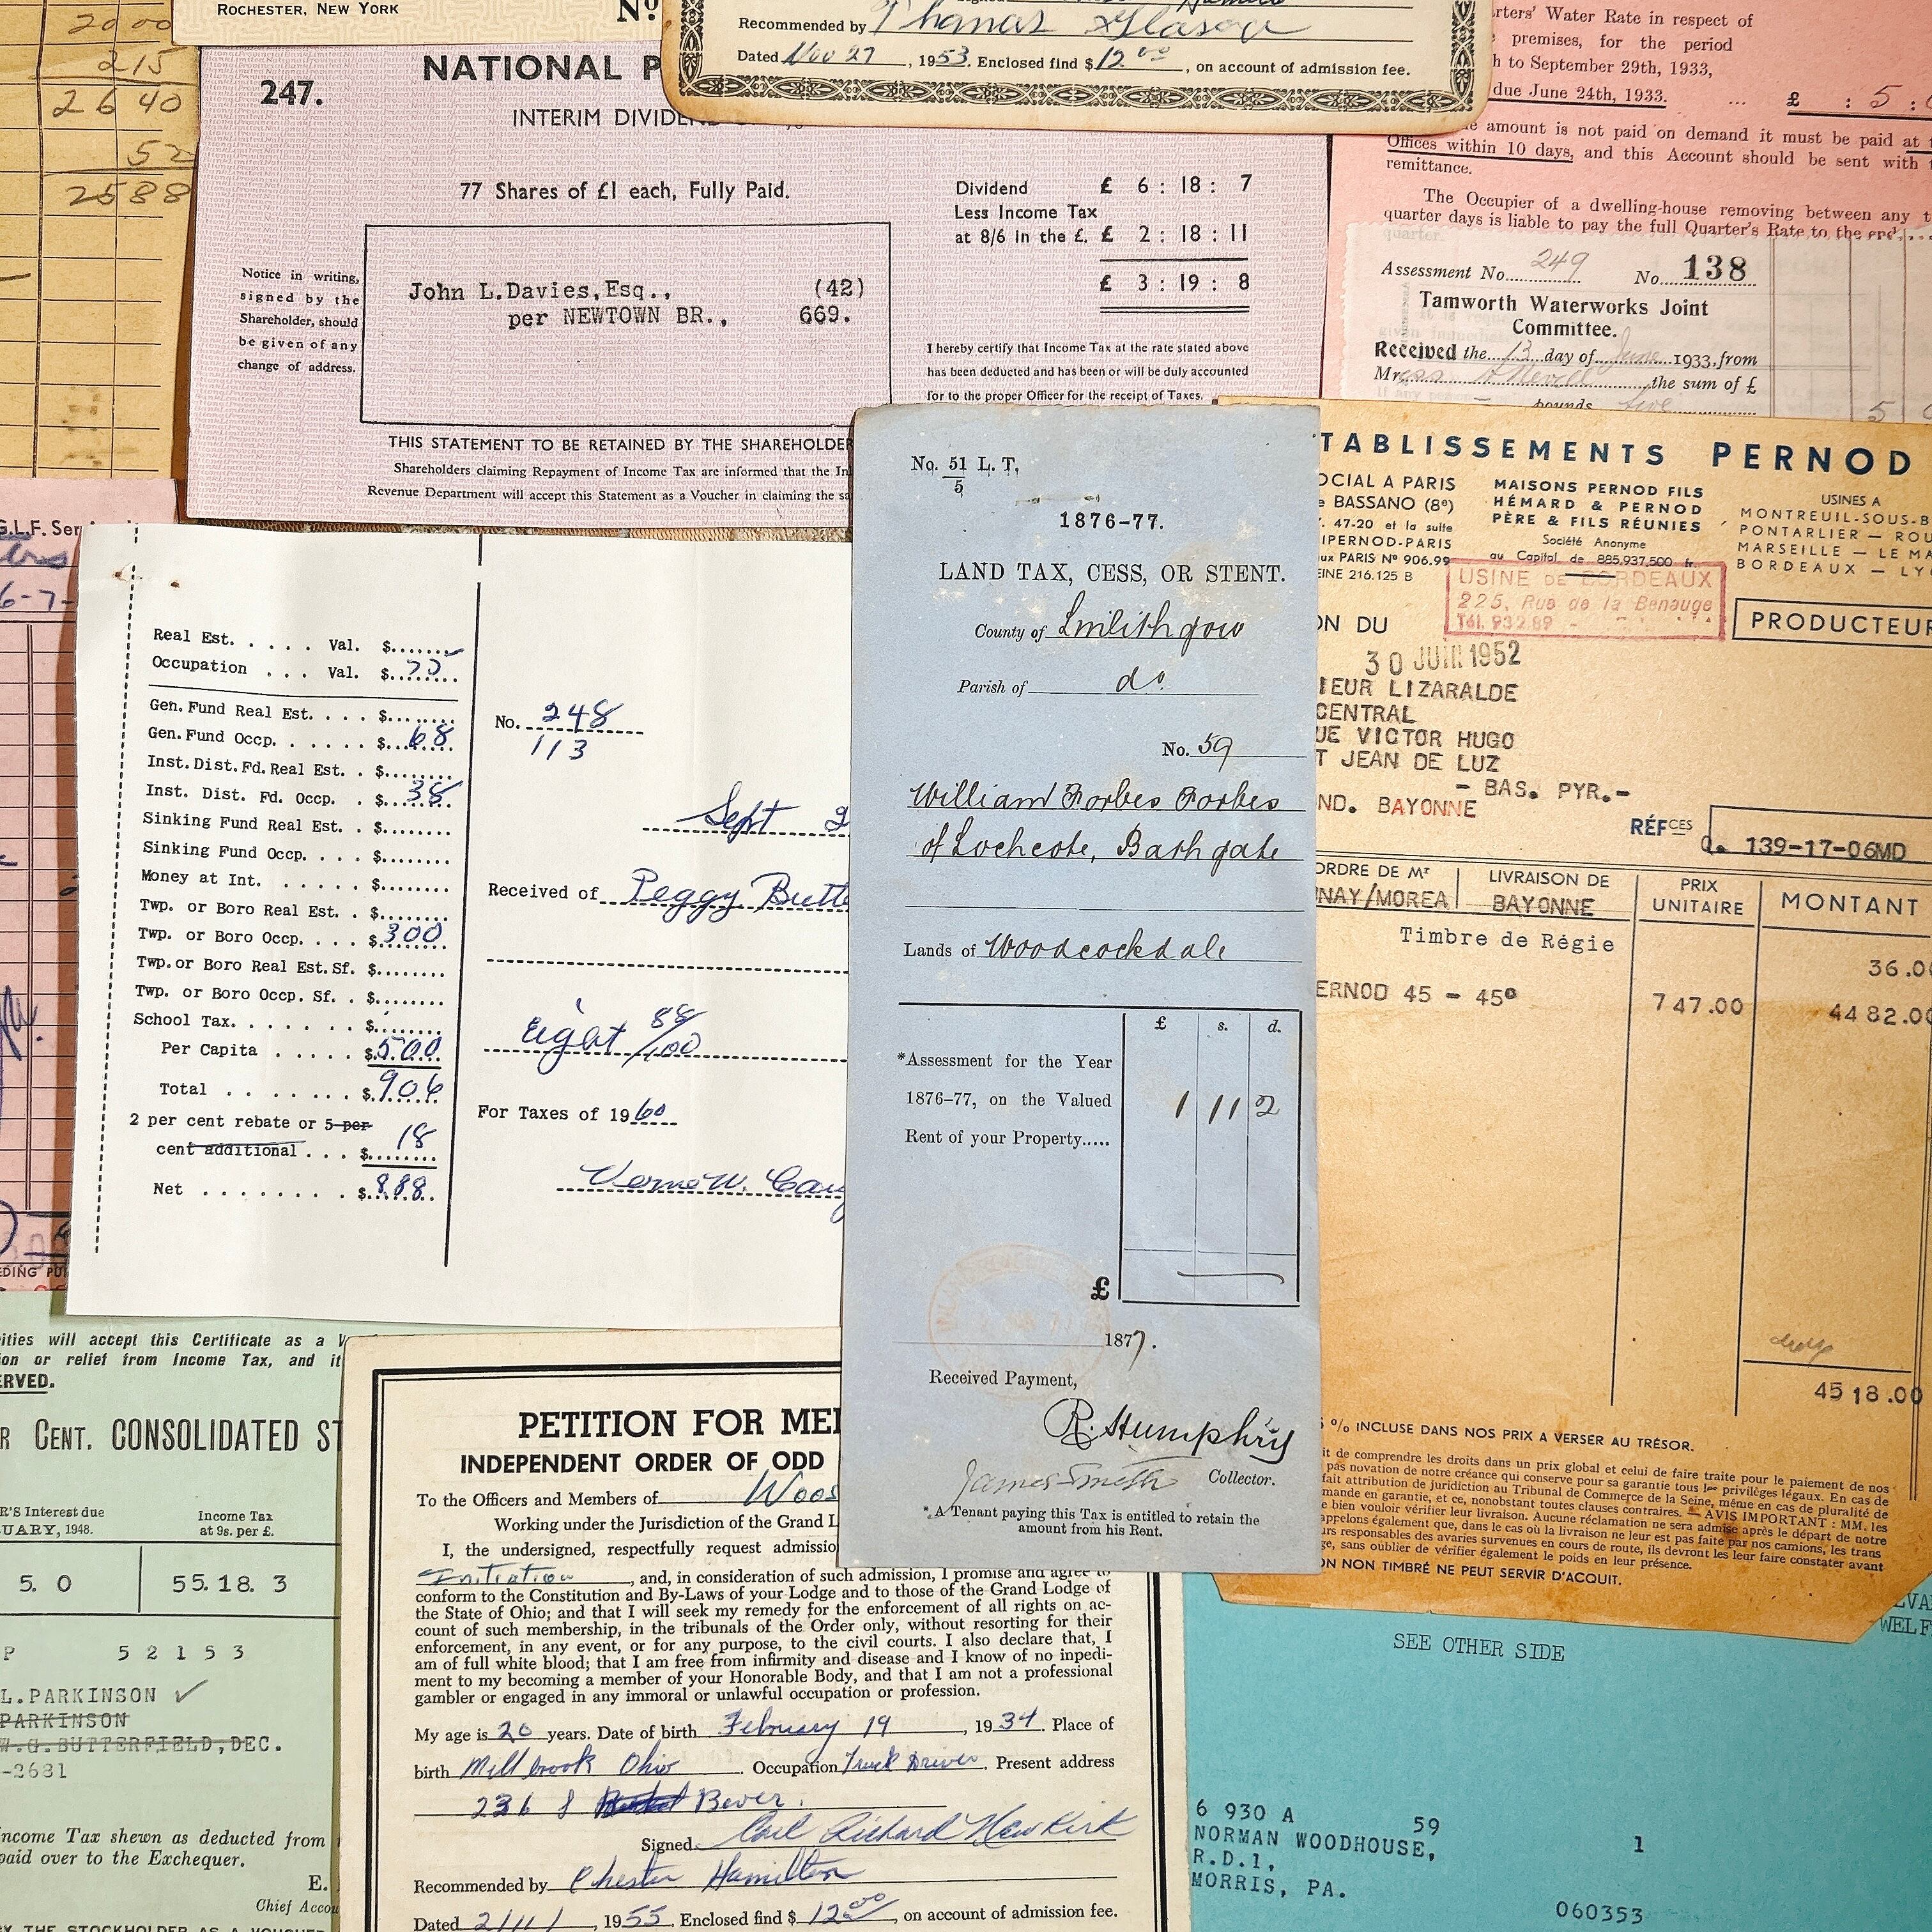 ROCHESTER, NEW YORK
Nº
2000
215
2640
52
2588
247.
NATIONAL P
INTERIM DIVIDEND
77 Shares of £1 each, Fully Paid.
Dividend £ 6 : 18 : 7
Less Income Tax
at 8/6 in the £. £ 2 : 18 : 11
£ 3 : 19 : 8
Notice in writing,
signed by the
Shareholder, should
be given of any
change of address.
John L.Davies,Esq., (42)
per NEWTOWN BR., 669.
I hereby certify that Income Tax at the rate stated above
has been deducted and has been or will be duly accounted
for to the proper Officer for the receipt of Taxes.
THIS STATEMENT TO BE RETAINED BY THE SHAREHOLDER
Shareholders claiming Repayment of Income Tax are informed that the In
Revenue Department will accept this Statement as a Voucher in claiming the sa
Recommended by Thomas Glasow
Dated Nov 27, 1953. Enclosed find $12.00, on account of admission fee.
rters' Water Rate in respect of
premises, for the period
h to September 29th, 1933,
due June 24th, 1933. ... £ : 5 :
e amount is not paid on demand it must be paid at
Offices within 10 days, and this Account should be sent with
remittance.
The Occupier of a dwelling-house removing between any t
quarter days is liable to pay the full Quarter's Rate to the end
quarter.
Assessment No. 249 No. 138
Tamworth Waterworks Joint
Committee.
Received the 13 day of June 1933, from
Mr the sum of £
pounds five
5
G.L.F. Ser
6-7-
Real Est. . . . . . Val. $
Occupation . . . Val. $ 75
Gen. Fund Real Est. . . . . $
Gen. Fund Occp. . . . . . $ 68
Inst. Dist. Fd. Real Est. . . $
Inst. Dist. Fd. Occp. . . $ 38
Sinking Fund Real Est. . . $
Sinking Fund Occp. . . . . $
Money at Int. . . . . . . $
Twp. or Boro Real Est. . . $
Twp. or Boro Occp. . . . . $ 300
Twp. or Boro Real Est. Sf. . $
Twp. or Boro Occp. Sf. . . $
School Tax. . . . . . . $
Per Capita . . . . . $ 500
Total . . . . . . . $ 906
2 per cent rebate or 5 per
cent additional . . . $ 18
Net . . . . . . . . $ 888
No. 248
113
Sept 2
Received of Peggy Butte
Eight 88/100
For Taxes of 1960
Verne W. Cau
No. 51/5 L. T.
1876-77.
LAND TAX, CESS, OR STENT.
County of Linlithgow
Parish of do.
No. 59
William Forbes Forbes
of Lochcote, Bathgate
Lands of Woodcockdale
£ s. d.
*Assessment for the Year
1876-77, on the Valued 1 11 2
Rent of your Property.....
£
1877.
Received Payment,
R. Humphrys
James Smith Collector.
*A Tenant paying this Tax is entitled to retain the
amount from his Rent.
TABLISSEMENTS PERNOD
OCIAL A PARIS
e BASSANO (8e)
47-20 et la suite
IPERNOD-PARIS
aux PARIS Nº 906.99
EINE 216.125 B
MAISONS PERNOD FILS
HÉMARD & PERNOD
PÈRE & FILS RÉUNIES
Société Anonyme
au Capital de 885.937.500 fr.
USINES A
MONTREUIL-SOUS-B
PONTARLIER — ROU
MARSEILLE — LE MA
BORDEAUX — LY
USINE DE BORDEAUX
225, Rue de la Benauge
Tél. 932 89
ON DU
PRODUCTEUR
30 JUIN 1952
IEUR LIZARALDE
CENTRAL
UE VICTOR HUGO
T JEAN DE LUZ
- BAS. PYR.-
ND. BAYONNE
RÉFCES
139-17-06MD
ORDRE DE Mr
NAY/MOREA
LIVRAISON DE
BAYONNE
PRIX
UNITAIRE
MONTANT
Timbre de Régie 36.00
ERNOD 45 - 45° 747.00 4482.00
4518.00
% INCLUSE DANS NOS PRIX A VERSER AU TRÉSOR.
it de comprendre les droits dans un prix global et celui de faire traite pour le paiement de nos
pas novation de notre créance qui conserve pour sa garantie tous les privilèges légaux. En cas de
fait attribution de juridiction au Tribunal de Commerce de la Seine, même en cas de pluralité de
mande en garantie, et ce, nonobstant toutes clauses contraires. — AVIS IMPORTANT : MM. les
e bien vouloir vérifier leur livraison. Aucune réclamation ne sera admise après le départ de notre
appelons également que, dans le cas où la livraison ne leur est pas faite par nos camions, les trans
urs responsables des avaries survenues en cours de route, ils devront les leur faire constater avant
ge, sans oublier de vérifier également le poids en leur présence.
ON NON TIMBRÉ NE PEUT SERVIR D'ACQUIT.
EDING PU
ities will accept this Certificate as a V
ion or relief from Income Tax, and it
ERVED.
R CENT. CONSOLIDATED ST
R'S Interest due
UARY, 1948.
Income Tax
at 9s. per £.
5. 0
55. 18. 3
P 52153
L.PARKINSON ✓
PARKINSON
W.G.BUTTERFIELD,DEC.
-2681
ncome Tax shewn as deducted from
paid over to the Exchequer.
E.
Chief Accou
BY THE STOCKHOLDER AS A VOUCHER
PETITION FOR MEM
INDEPENDENT ORDER OF ODD
To the Officers and Members of Woos
Working under the Jurisdiction of the Grand L
I, the undersigned, respectfully request admissio
Initiation, and, in consideration of such admission, I promise and agree to
conform to the Constitution and By-Laws of your Lodge and to those of the Grand Lodge of
the State of Ohio; and that I will seek my remedy for the enforcement of all rights on ac-
count of such membership, in the tribunals of the Order only, without resorting for their
enforcement, in any event, or for any purpose, to the civil courts. I also declare that, I
am of full white blood; that I am free from infirmity and disease and I know of no inpedi-
ment to my becoming a member of your Honorable Body, and that I am not a professional
gambler or engaged in any immoral or unlawful occupation or profession.
My age is 20 years. Date of birth February 19, 1934. Place of
birth Millbrook Ohio. Occupation Truck Driver. Present address
236 S Bever.
Signed Carl Richard Newkirk
Recommended by Chester Hamilton
Dated 2/11/, 1955. Enclosed find $12.00, on account of admission fee.
SEE OTHER SIDE
LVA
WELF
6 930 A 59
NORMAN WOODHOUSE, 1
R.D.1,
MORRIS, PA.
060353